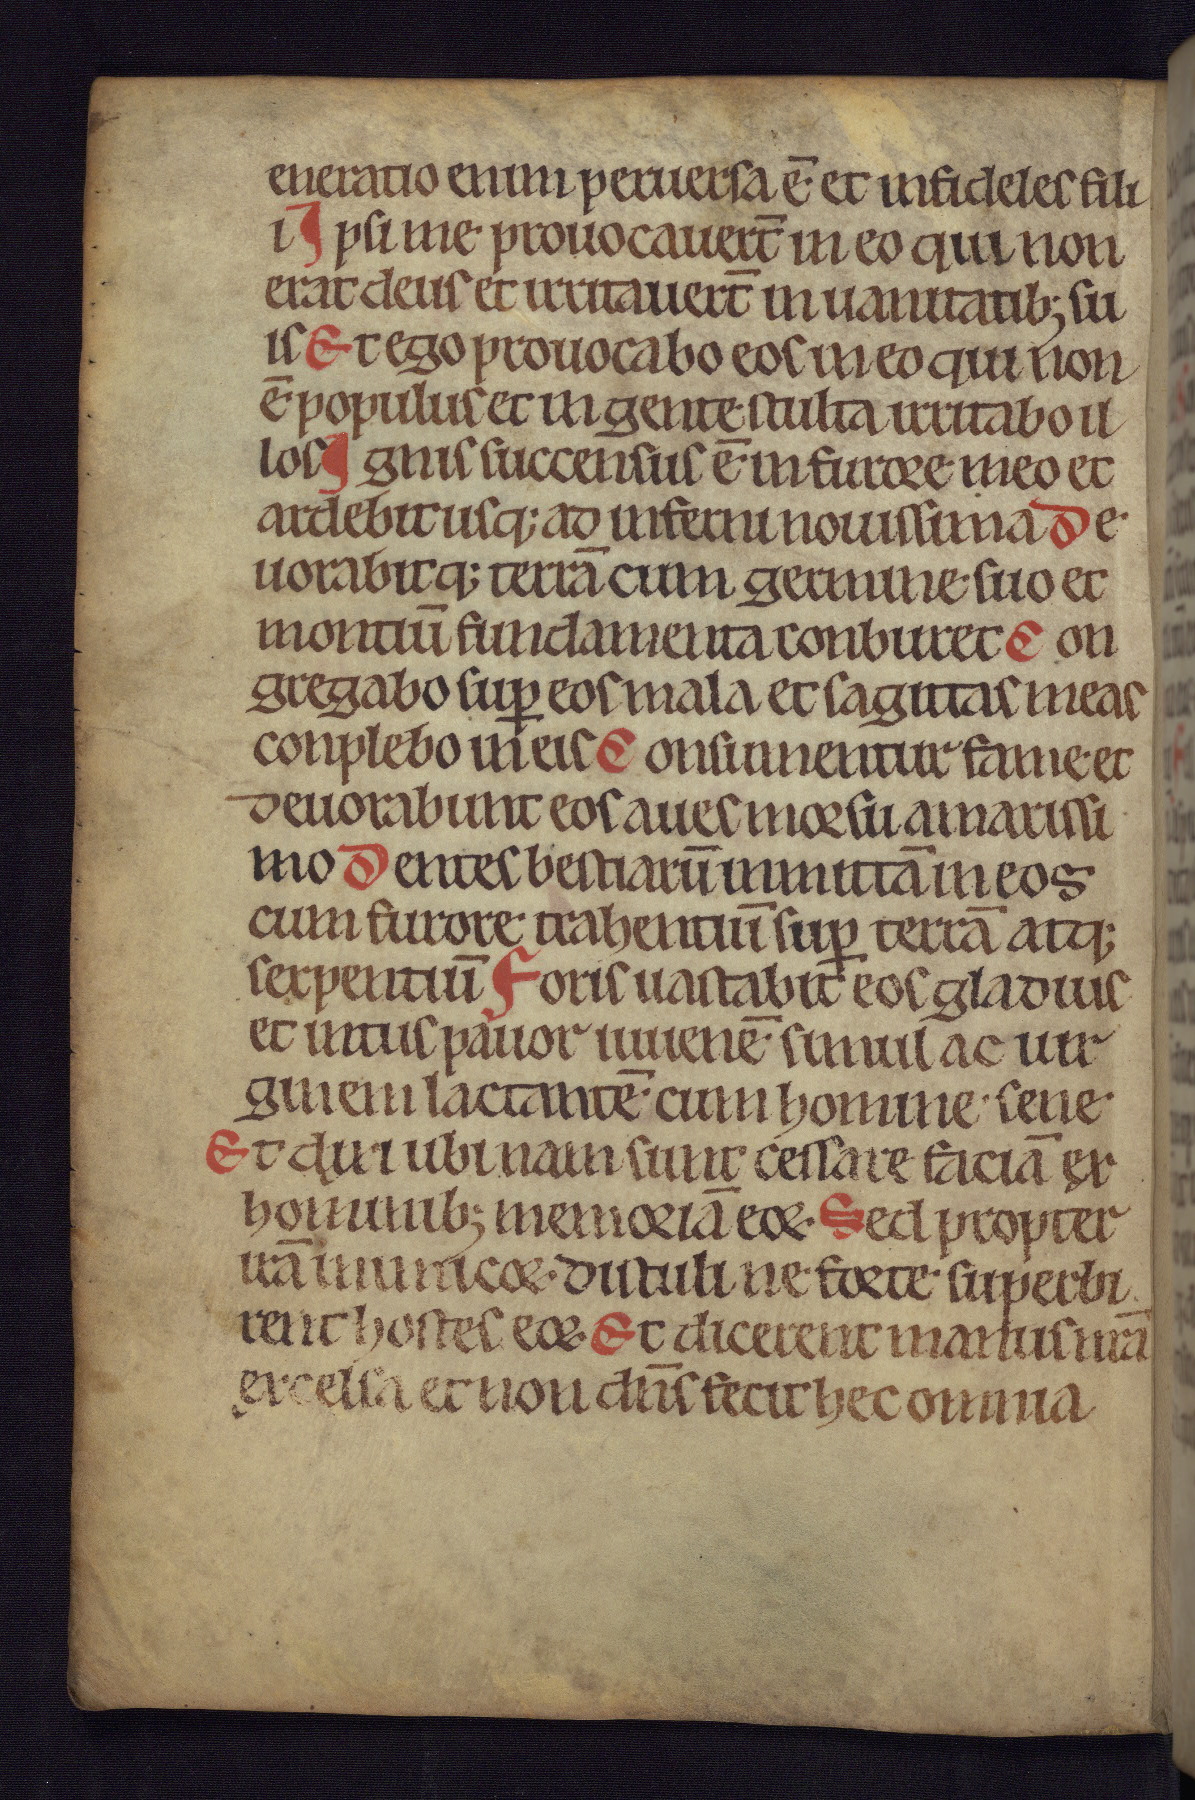 eneratio enim peruersa ē et infideles fili
i Ipsi me prouocauerт̄ in eo qui non
erat deus et irritauert̄ in uanitatib; su
is Et ego prouocabo eos in eo qui non
ē populus et in gente stulta irritabo il
los Ignis succensus ē in furore meo et
ardebit usq; ad inferni nouissima De
uorabitq; terrā cum germine suo et
montiū fundamenta conburet Con
gregabo suꝑ eos mala et sagittas meas
conplebo in eis Consumentur fame et
deuorabunt eos aues morsu amarissi
mo Dentes bestiarū inmittā in eos
cum furore trahentiū suꝑ terrā atq;
serpentiū Foris uastabit eos gladius
et intus pauor iuuenē simul ac uir
ginem lactantē cum homine sene
Et dixi ubi nam sunt cessare faciā ex
hominib; memoriā eoꝝ. Sed propter
irā inimicoꝝ. distuli ne forte superbi
rent hostes eoꝝ. Et dicerent manus nr̄a
excelsa et non dn̄s fecit hec omnia